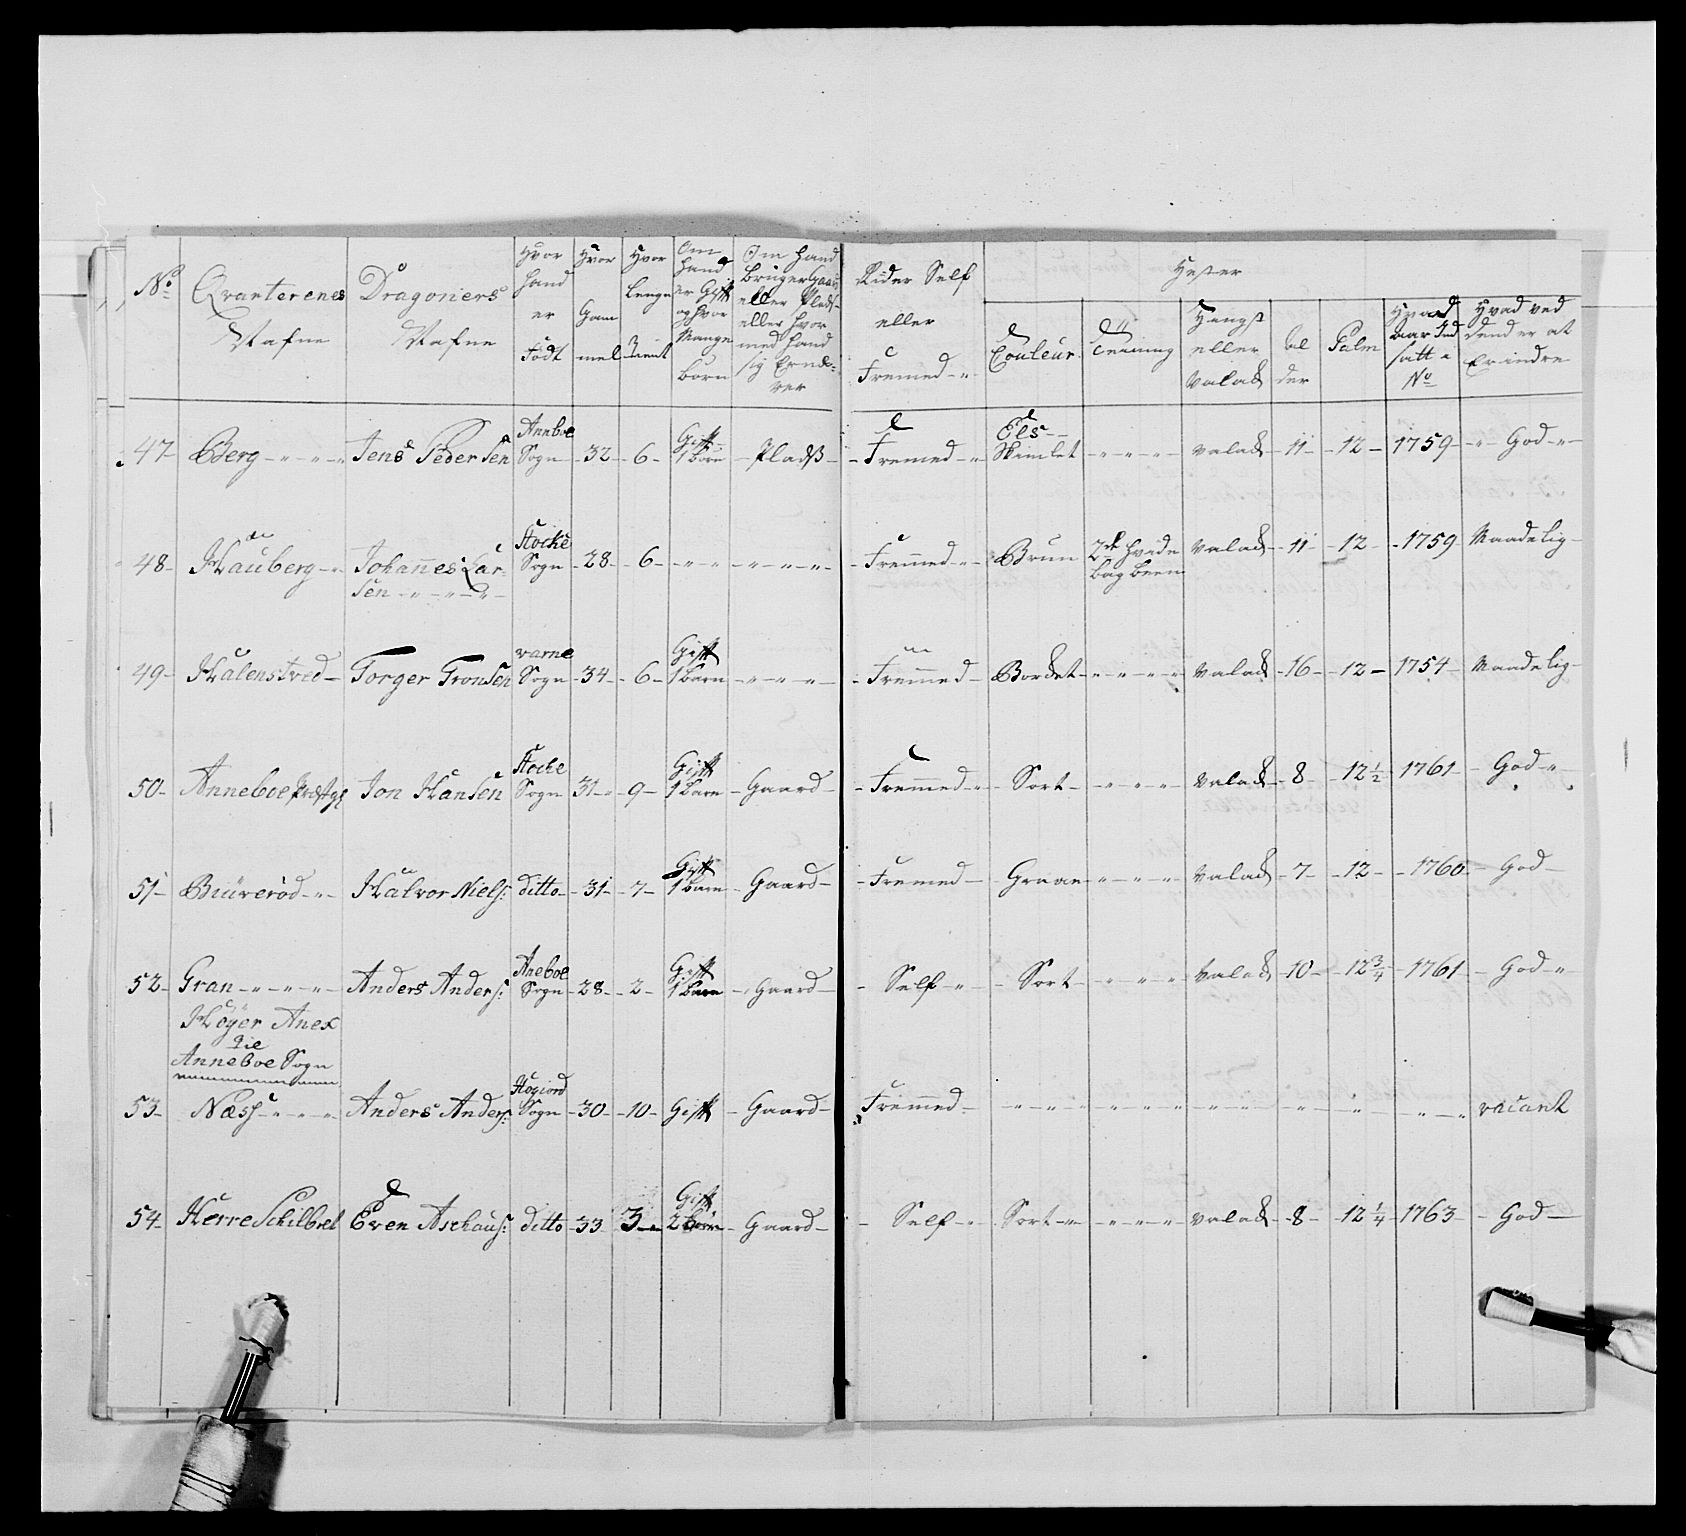 No Qvarterenes Nafne Dragoners Nafne Hvor hand er Födt Hvor Gammel Hvor Lenge tient Om hand er Gift og hvor Mange Born Om hand Bruger Gaard eller Plads eller hvor med hand sig Ernærer Rider Self eller Fremed Hester
Couleur Teigning Hengst eller valak al der Palm Hvad aar Ind satt i No Hvad ved dend er at Erindre
47 Berg Jens Pedersen Anneboe Sogn 32 6 Gift 1 Barn Pladß Fremed Els Skimlet valak 11 12 1759 God
48 Hauberg Johannes Larsen Stocke Sogn 28 6 Fremmed Brun 2de hvide bag been valak 11 12 1759 Maadelig
49 Halenstved Torger Tronsen varne Sogn 34 6 Gift 1 barn Fremmed Borket valak 16 12 1754 Maadelig
50 Anneboe Præstgd Jon Hansen Stocke Sogn 31 9 Gift 1 barn Gaard Fremmed Sort valak 8 12 1/2 1761 God
51 Biüreröd Halvor Niels: ditto 31 7 Gift 1 barn Gaard Fremed Graae valak 7 12 1760 God
52 Gran Anders Anders: Aneboe Sogn 28 2 Gift 1 barn Gaard Self Sort valak 10 12 3/4 1761 God
Höyer Anex
Anneboe Sogn
53 Næss Anders Anders: Sogn 30 10 Gift Gaard Fremmed vacant
54 Herre Schilbret Even Aschaus: ditto 33 3 Gift 2 börn Gaard Self Sort valak 8 12 1/4 1763 God